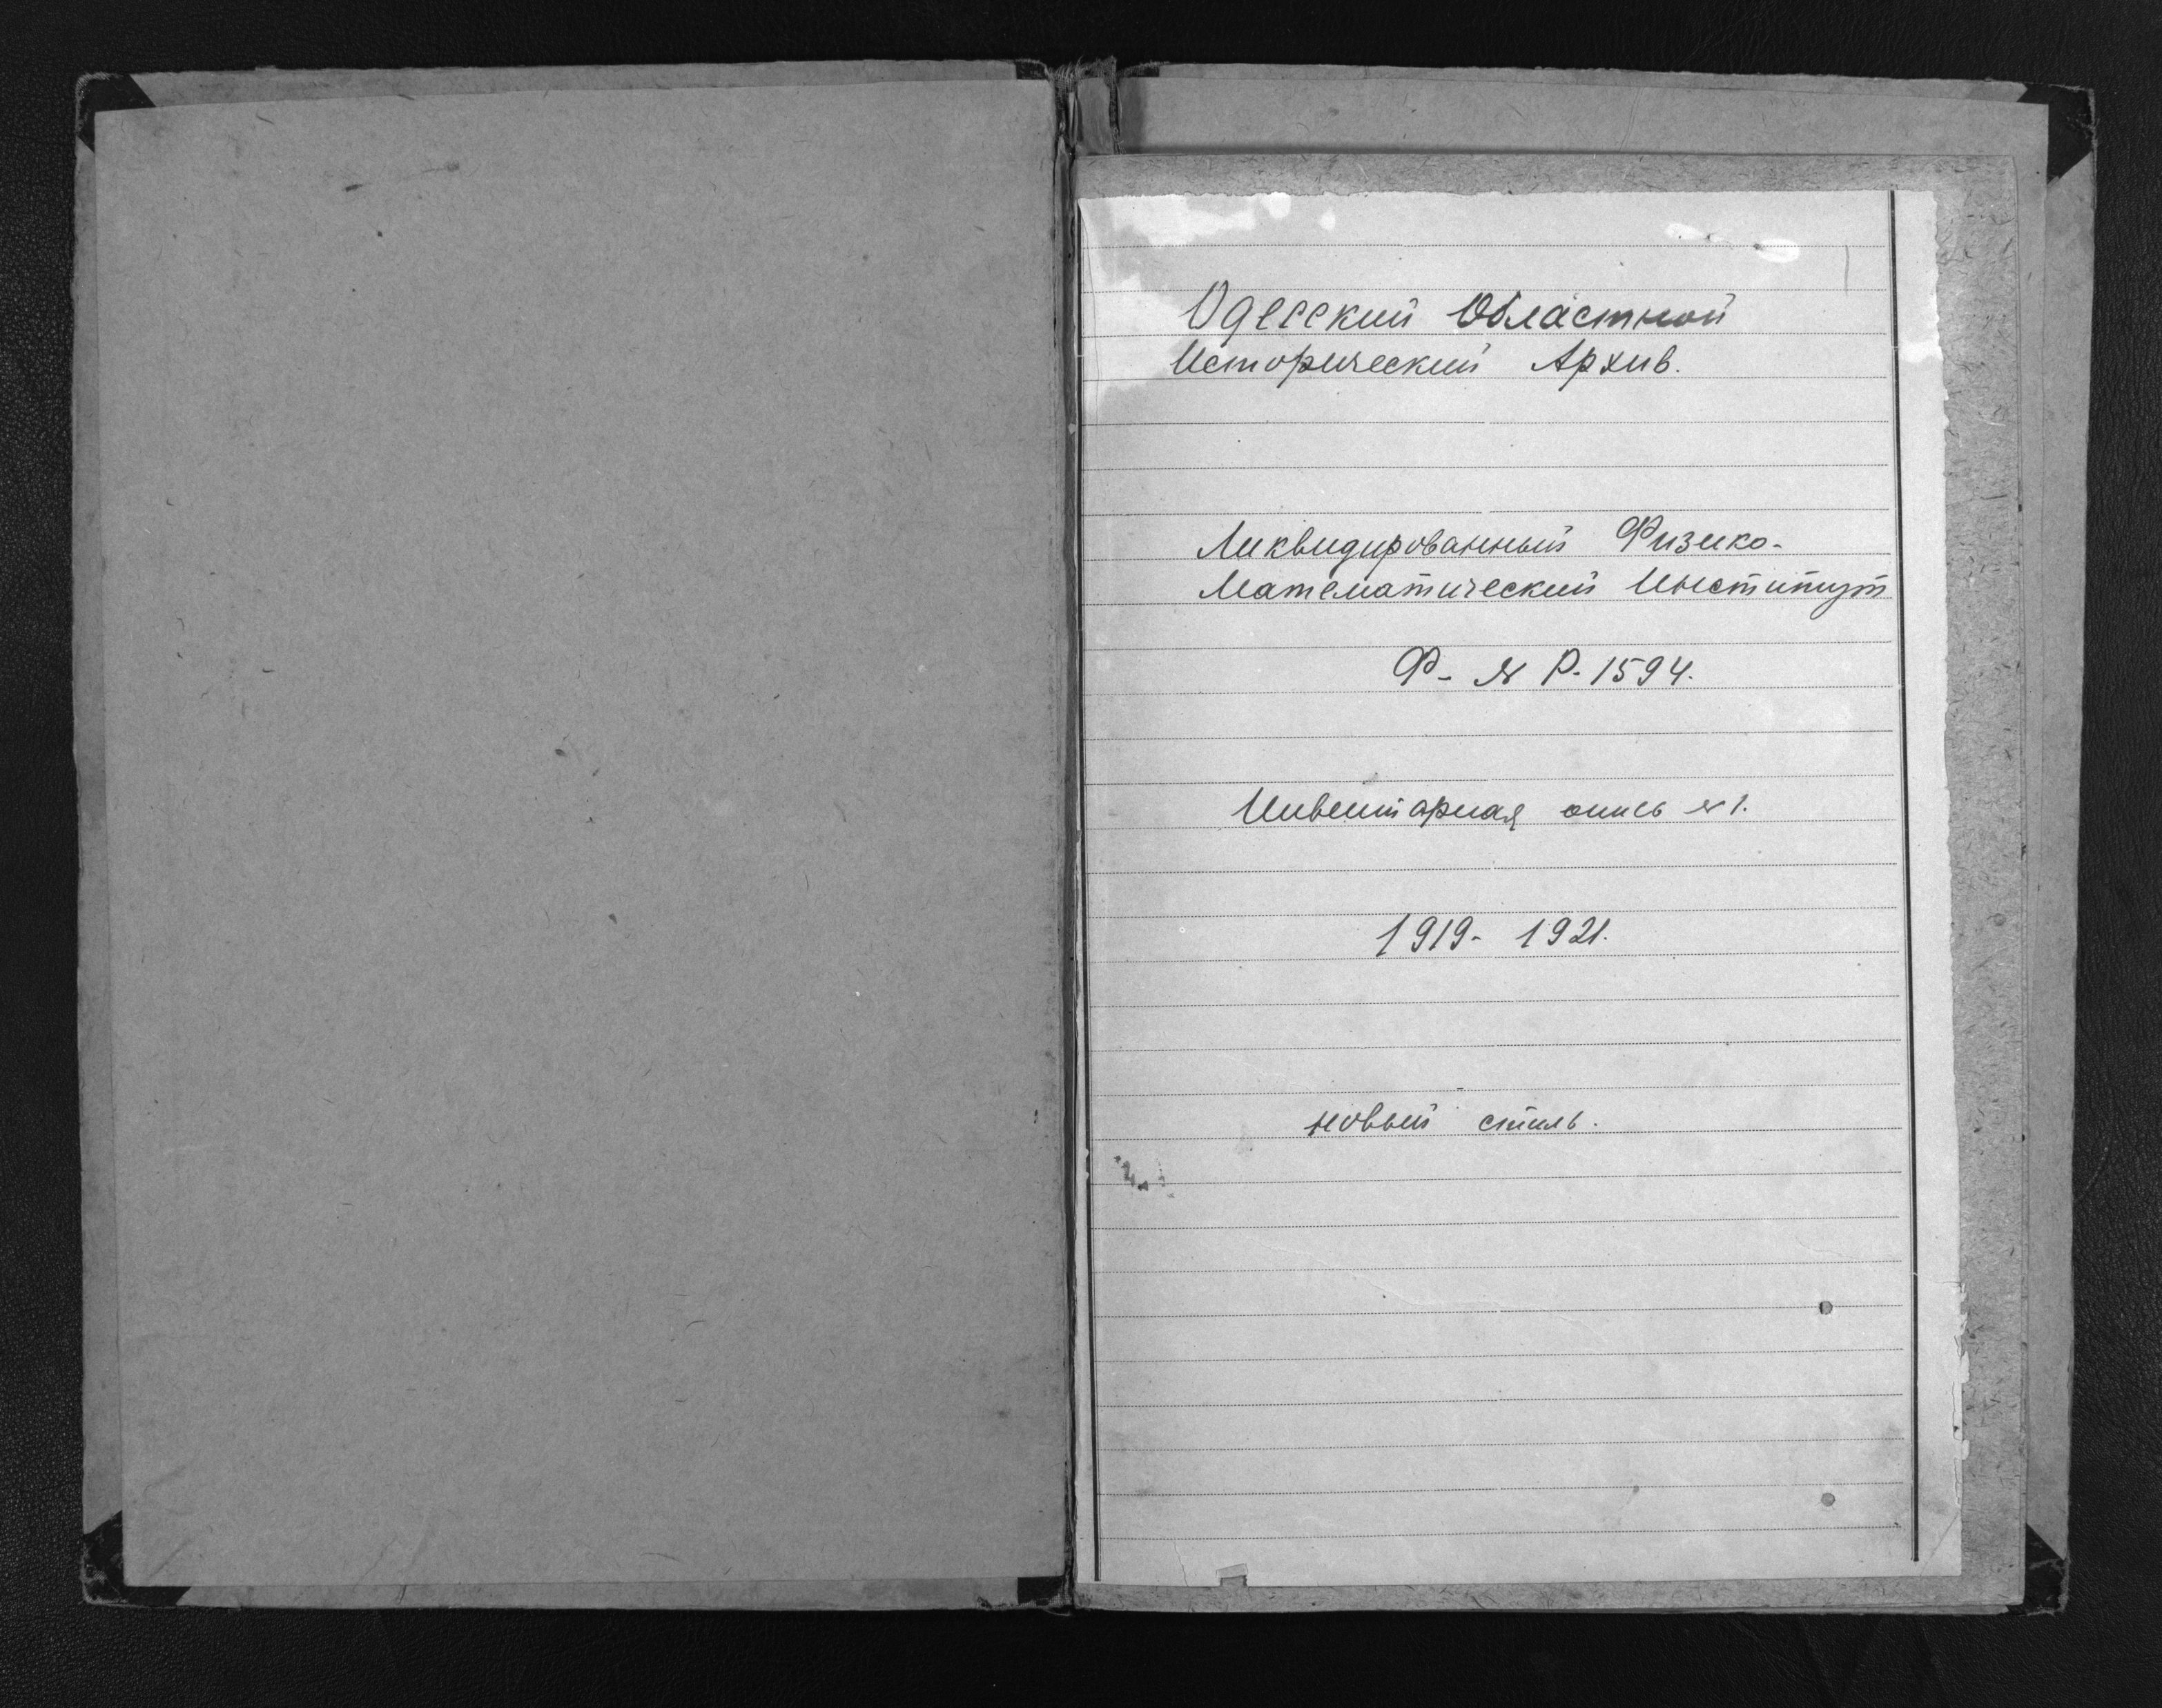 Одесский Областной
Исторический Архив.
Ликвидированный Физико-
Математический Институт
Ф- № Р. 1594.
Инвентарная опись № 1.
1919- 1921.
новый стиль.